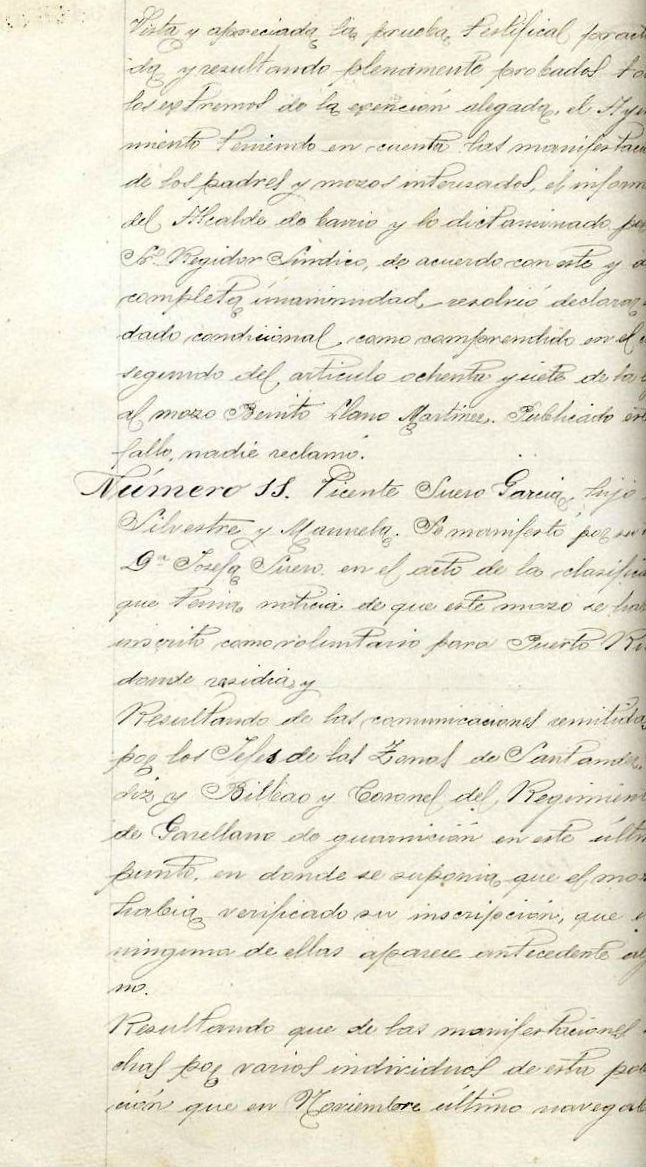 Vista y apreciada la prueba testifical practi
da y resultando plenamente probados to
los extremos de la exención alegada, el Ayu
miento teniendo en cuenta las manifestacio
de los padres y mozos interesados, el inform
del Alcalde de barrio y lo dictaminado po
Sr. Regidor Síndico, de acuerdo con este y
completa unanimidad resolvió declarar
dado condicional como comprendido en el
segundo del artículo ochenta y siete de la
al mozo Benito Llano Martinez. Publicado es
fallo, nadie reclamó.
Número 11. Vicente Suero Garcia, hijo
Silvestre y Manuela. Se manifestó por su
Dª Josefa Suero en el acto de la clasifica
que tenia noticia de que este mozo se ha
inscrito como voluntario para Puerto Ri
donde residia, y
Resultando de las comunicaciones remitidas
por los Jefes de las Zonas de Santander,
diz y Bilbao y Coronel del Regimien
de Garellano de guarnición en este últi
punto, en donde se suponia que el moz
habia verificado su inscripción, que
ninguna de ellas aparece antecedente al
no.
Resultando que de las manifestaciones
chas por varios individuos de esta po
ción que en Noviembre último navega